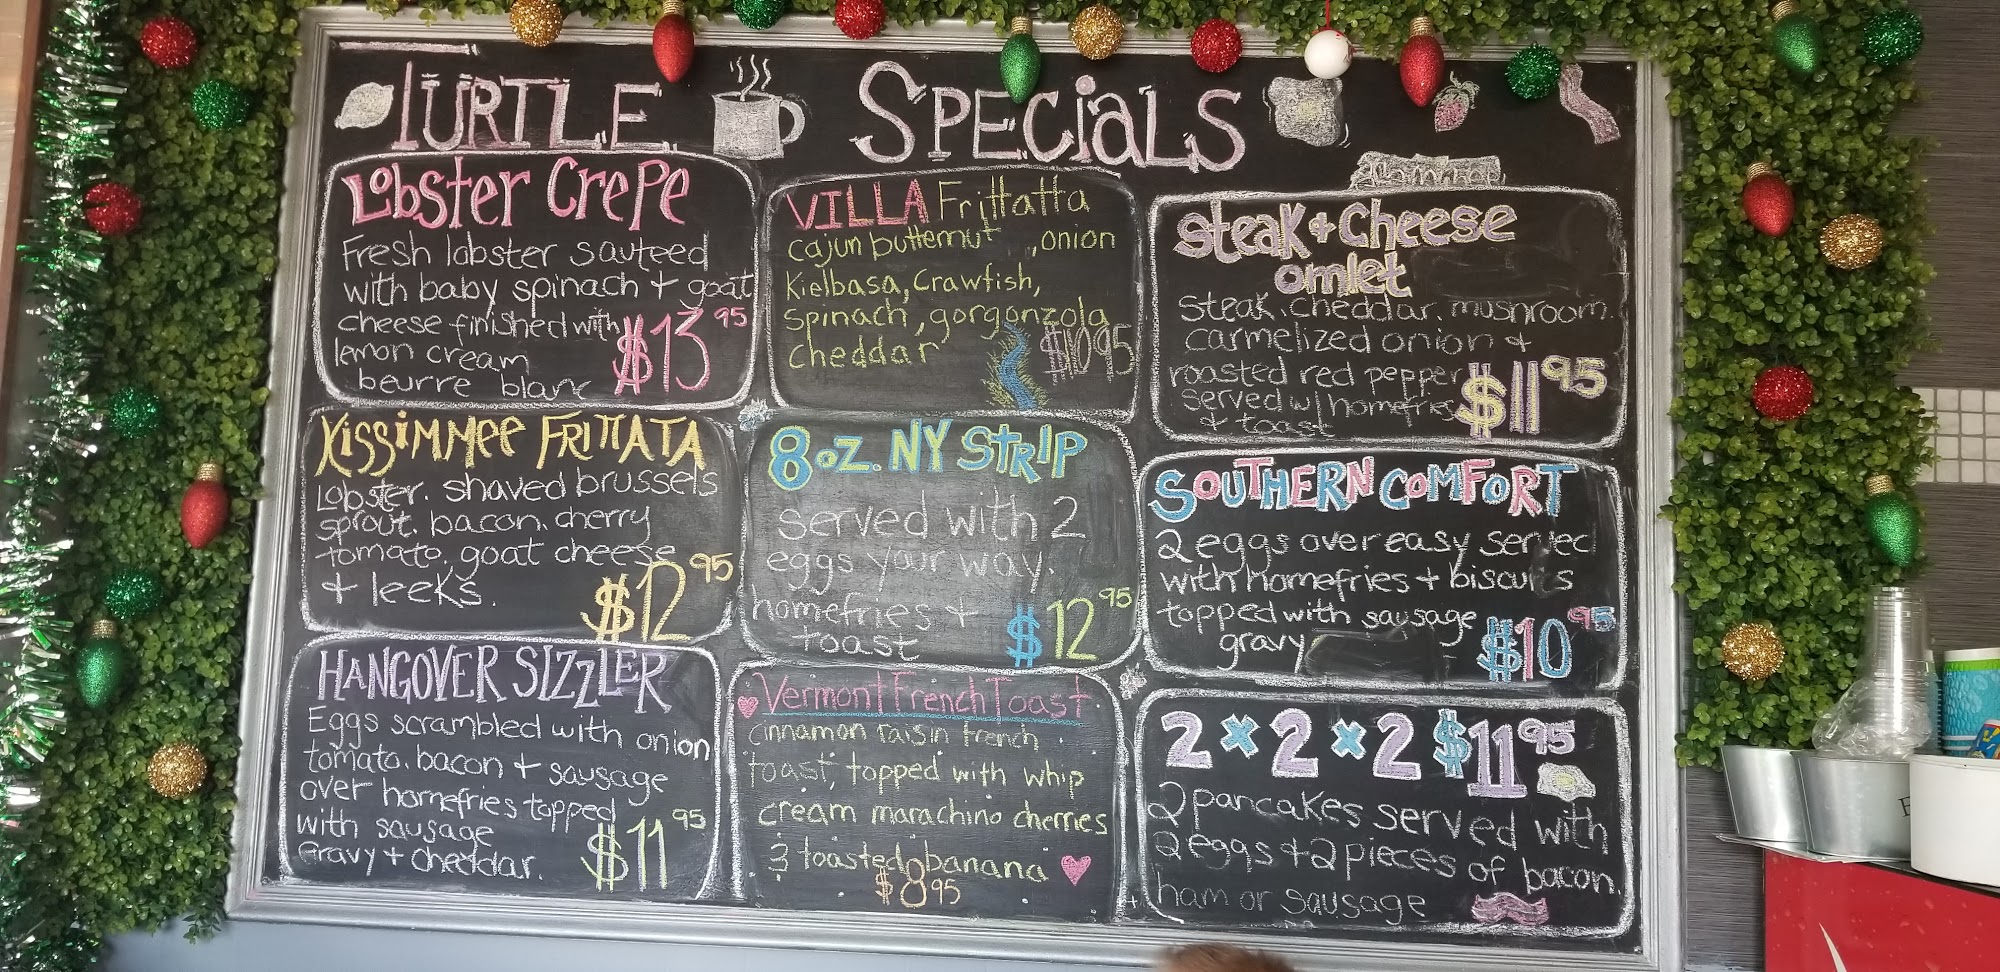 TURTLE SPECiALS
Lobster Crepe
Fresh lobster sauteed
with baby spinach + goat
cheese finished with
lemon cream
beurre blanc
$13 95
VILLA Frittatta
cajun butternut , onion
Kielbasa, Crawfish,
spinach, gorgonzola
cheddar
$10 95
Steak + Cheese
omlet
Steak, cheddar, mushroom,
carmelized onion +
roasted red pepper
served w/ homefries
+ toast
$11 95
KissiMMee FRITTATA
Lobster, shaved brussels
sprout, bacon, cherry
tomato, goat cheese
+ leeks.
$12 95
8 oz. NY STRIP
served with 2
eggs your way.
homefries +
toast
$12 95
SOUTHERN COMFORT
2 eggs over easy served
with homefries + biscuits
topped with sausage
gravy
$10 95
HANGOVER SIZZLER
Eggs scrambled with onion
tomato, bacon + sausage
over homefries topped
with sausage
gravy + cheddar.
$11 95
Vermont French Toast
cinnamon raisin french
toast, topped with whip
cream marachino cherries
& toasted banana
$8 95
2 x 2 x 2 $11 95
2 pancakes served with
2 eggs + 2 pieces of bacon,
ham or sausage